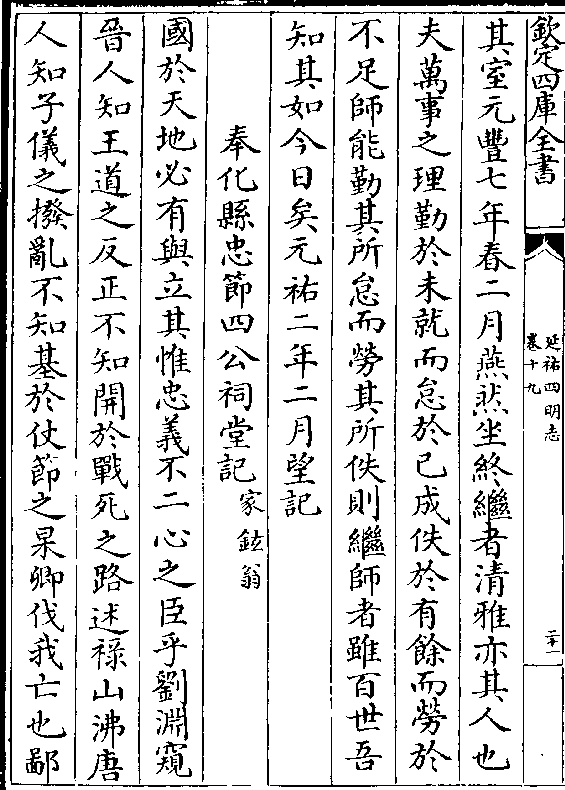 欽定四庫全書
延祐四明志
卷十九
二十一
其室元豐七年春二月燕然坐終繼者清雅亦其人也
夫萬事之理勤於未就而怠於已成佚於有餘而勞於
不足師能勤其所怠而勞其所佚則繼師者雖百世吾
知其如今日矣元祐二年二月望記
奉化縣忠節四公祠堂記家鉉翁
國於天地必有與立其惟忠義不二心之臣乎劉淵窺
晉人知王道之反正不知開於戰死之路述祿山沸唐
人知子儀之撥亂不知基於仗節之杲卿伐我亡也鄢